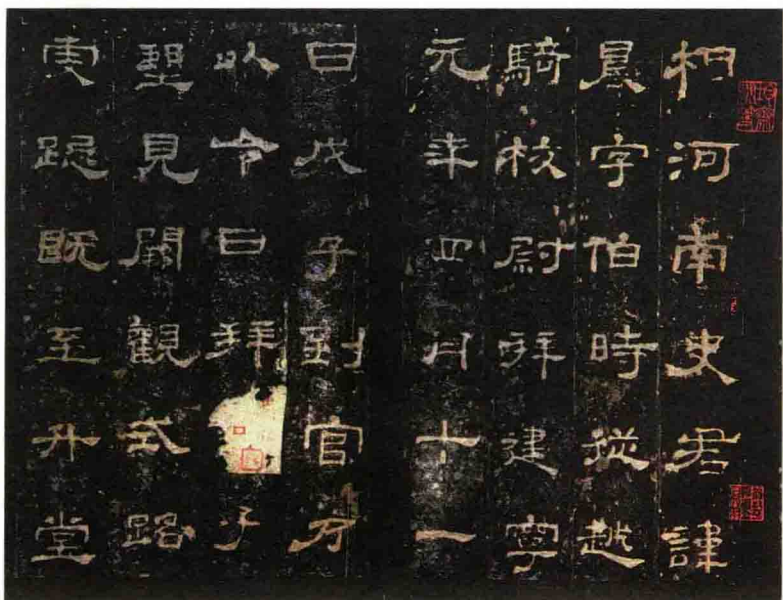 相河南史君諱
晨字伯時從越
騎校尉拜建寧
元年四月十一
日戊子到官乃
以令日拜子
望見闕觀式路
虔跽既至升堂